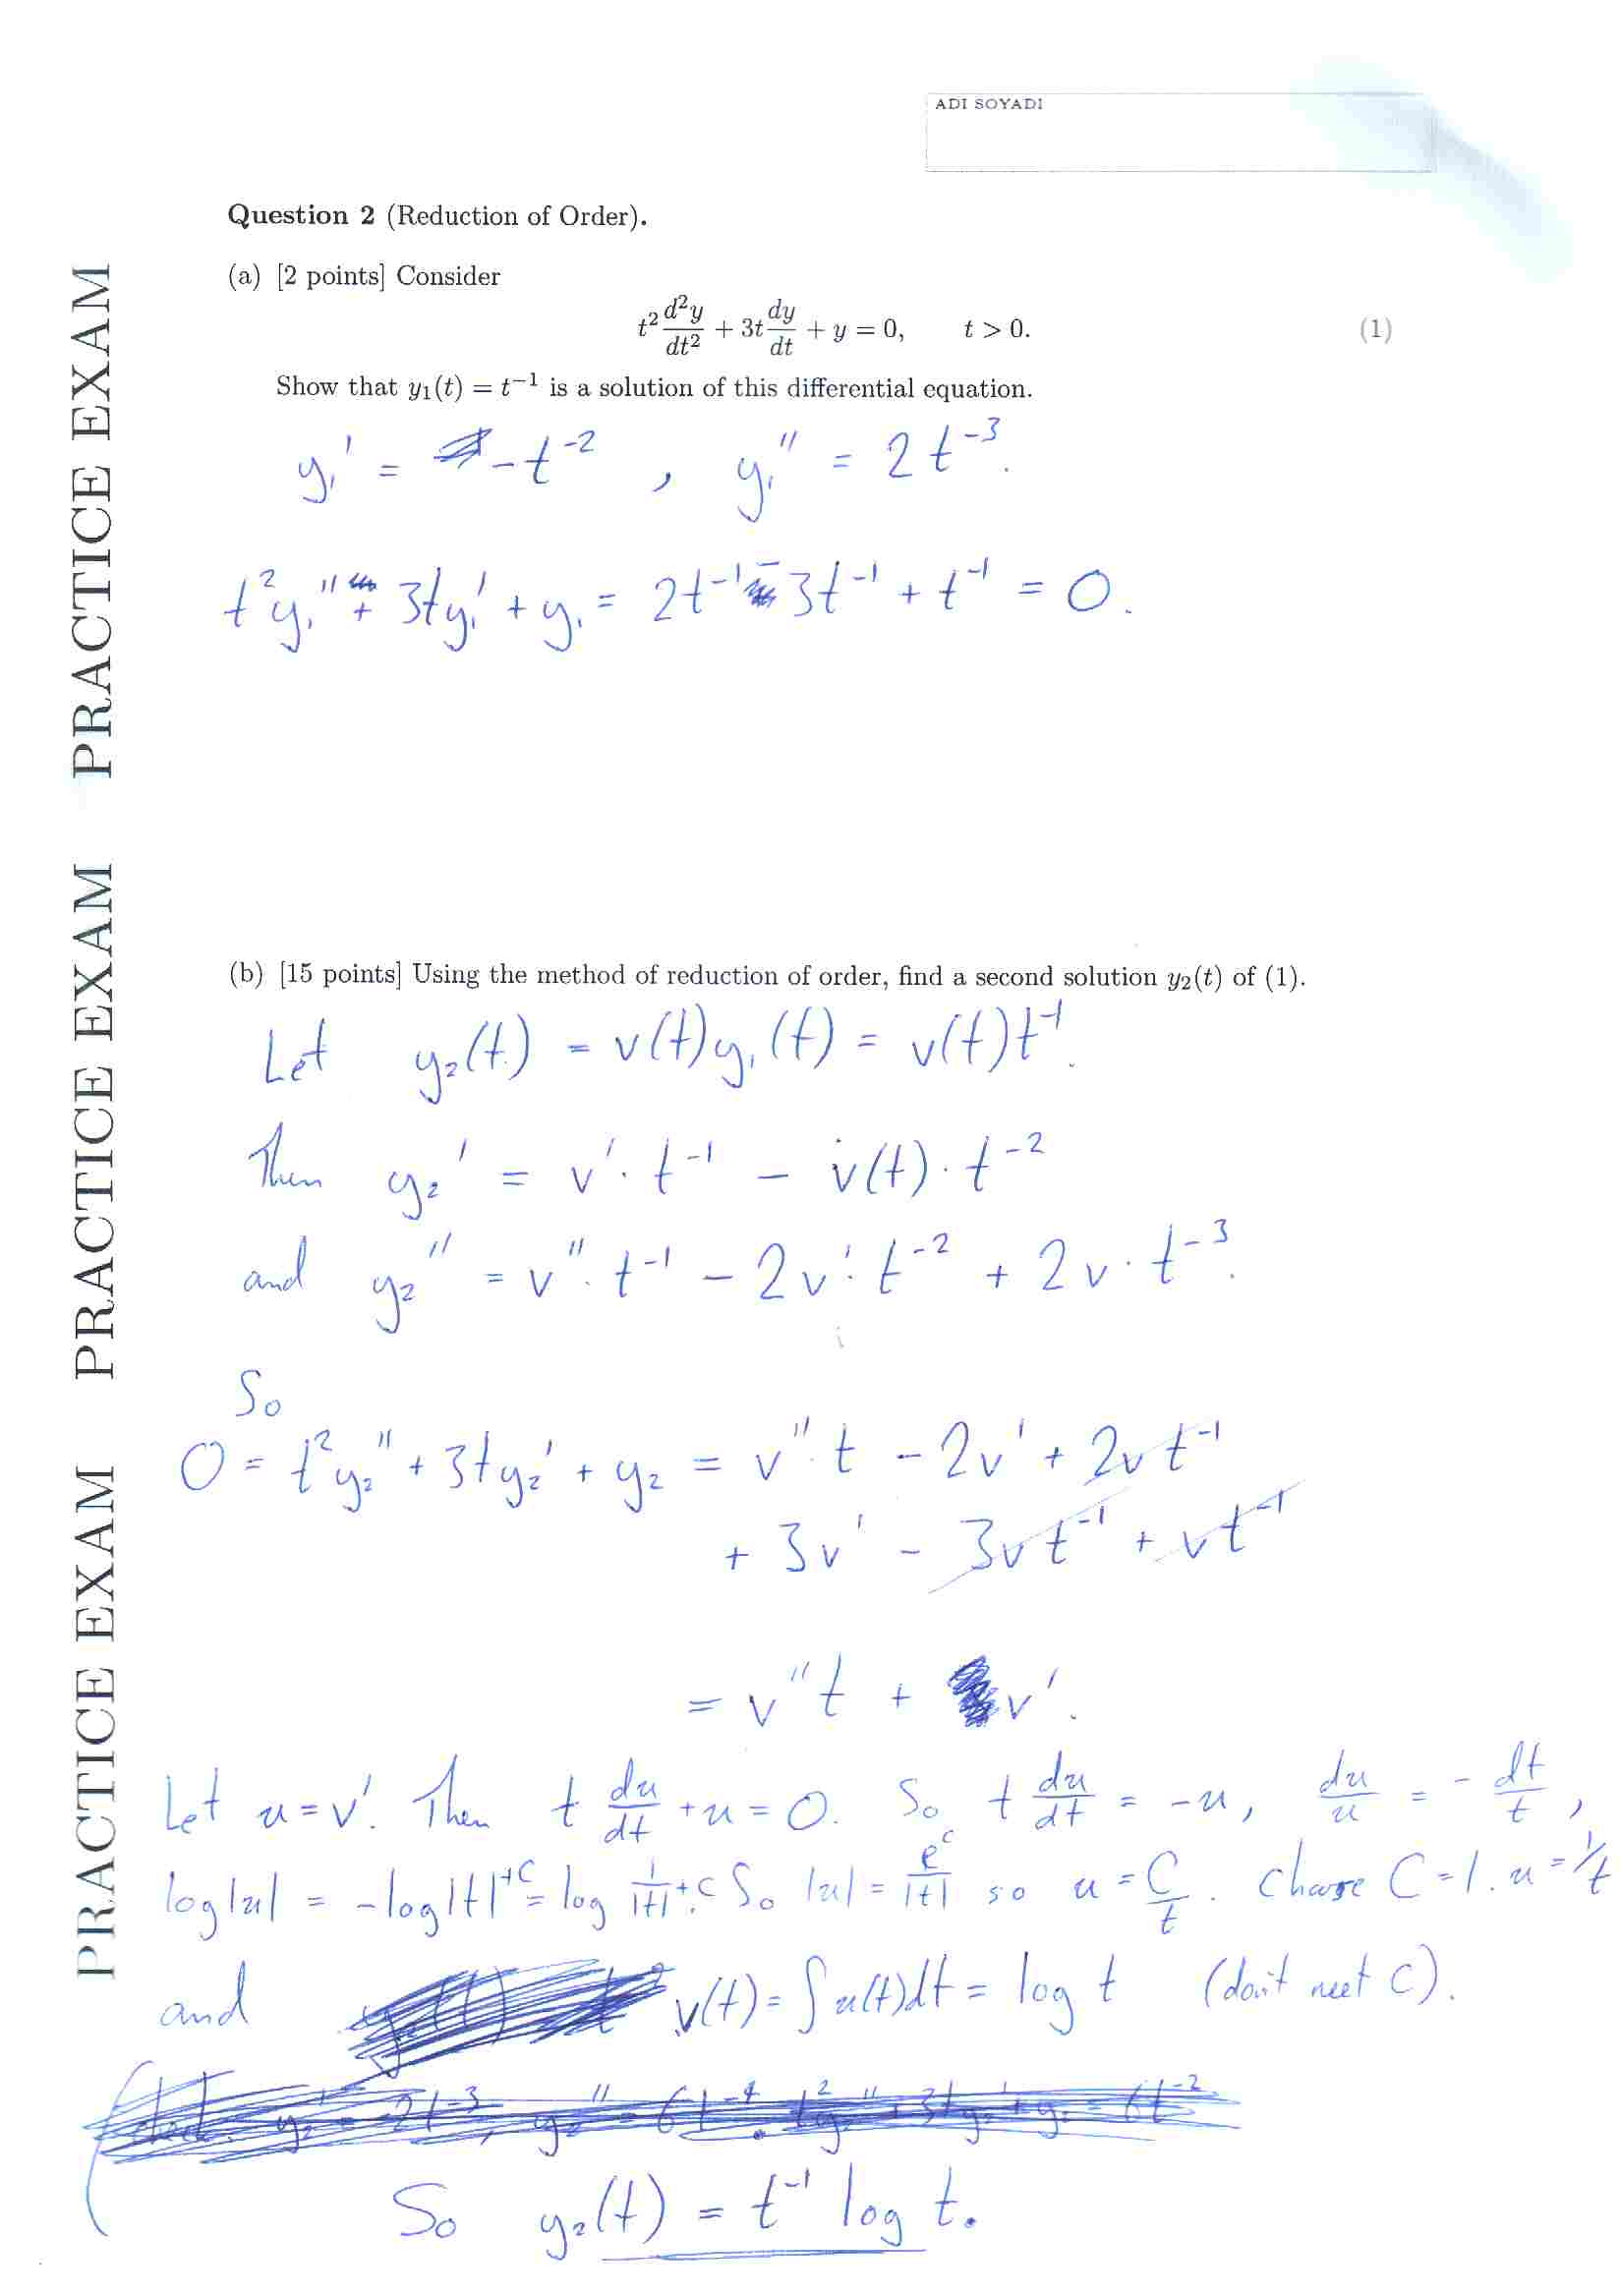 ADI SOYADI
Question 2 (Reduction of Order).
(a) [2 points] Consider
t² d²y/dt² + 3t dy/dt + y = 0,   t > 0.   (1)
Show that y₁(t) = t⁻¹ is a solution of this differential equation.
y₁' = -t⁻², y₁'' = 2t⁻³.
t²y₁'' + 3ty₁' + y₁ = 2t⁻¹ - 3t⁻¹ + t⁻¹ = 0.
(b) [15 points] Using the method of reduction of order, find a second solution y₂(t) of (1).
Let y₂(t) = v(t)y₁(t) = v(t)t⁻¹.
Then y₂' = v'·t⁻¹ - v(t)·t⁻²
and y₂'' = v''·t⁻¹ - 2v'·t⁻² + 2v·t⁻³.
So
0 = t²y₂'' + 3ty₂' + y₂ = v''·t - 2v' + 2vt⁻¹
+ 3v' - 3vt⁻¹ + vt⁻¹
= v''t + v'.
Let u = v'. Then t du/dt + u = 0. So t du/dt = -u, du/u = - dt/t,
log|u| = -log|t| + C = log 1/|t| + C. So |u| = e^c/|t| so u = C/t. Choose C = 1. u = 1/t
and v(t) = ∫u(t)dt = log t (don't neet C).
So y₂(t) = t⁻¹ log t.
PRACTICE EXAM PRACTICE EXAM PRACTICE EXAM